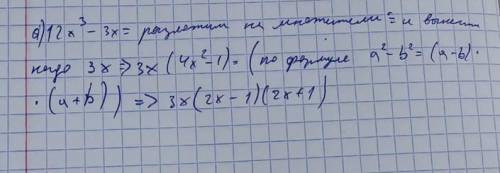 а) 12x³ - 3x = разложим на множители = и вынести
надо 3x => 3x (4x² - 1) = (по формуле a² - b² = (a - b) ·
· (a + b)) => 3x (2x - 1) (2x + 1)